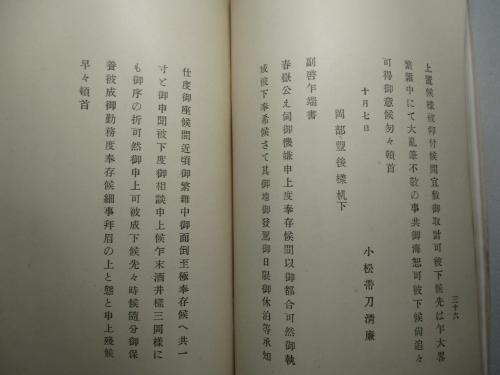 三十六
上置候樣被仰付候間宜敷御取計可被下候先は乍大畧
繁雜中にて大亂筆不敬の事共御海恕可被下候尙追々
可得御意候匆々頓首
十月七日
小松帶刀淸廉
岡部豐後樣机下
副啓乍端書
春嶽公え伺御機嫌申上度奉存候間以御都合可然御執
成被下奉希候さて其御地御發駕御日限御休泊等承知
仕度御座候間近頃御繁雜中御面倒至極奉存候へ共一
寸と御申聞被下度御相談申上候乍末酒井樣三岡樣に
も御序の折可然御申上可被成下候先々時候隨分御保
養被成御勤務度奉存候細事拜眉の上と態と申上殘候
早々頓首